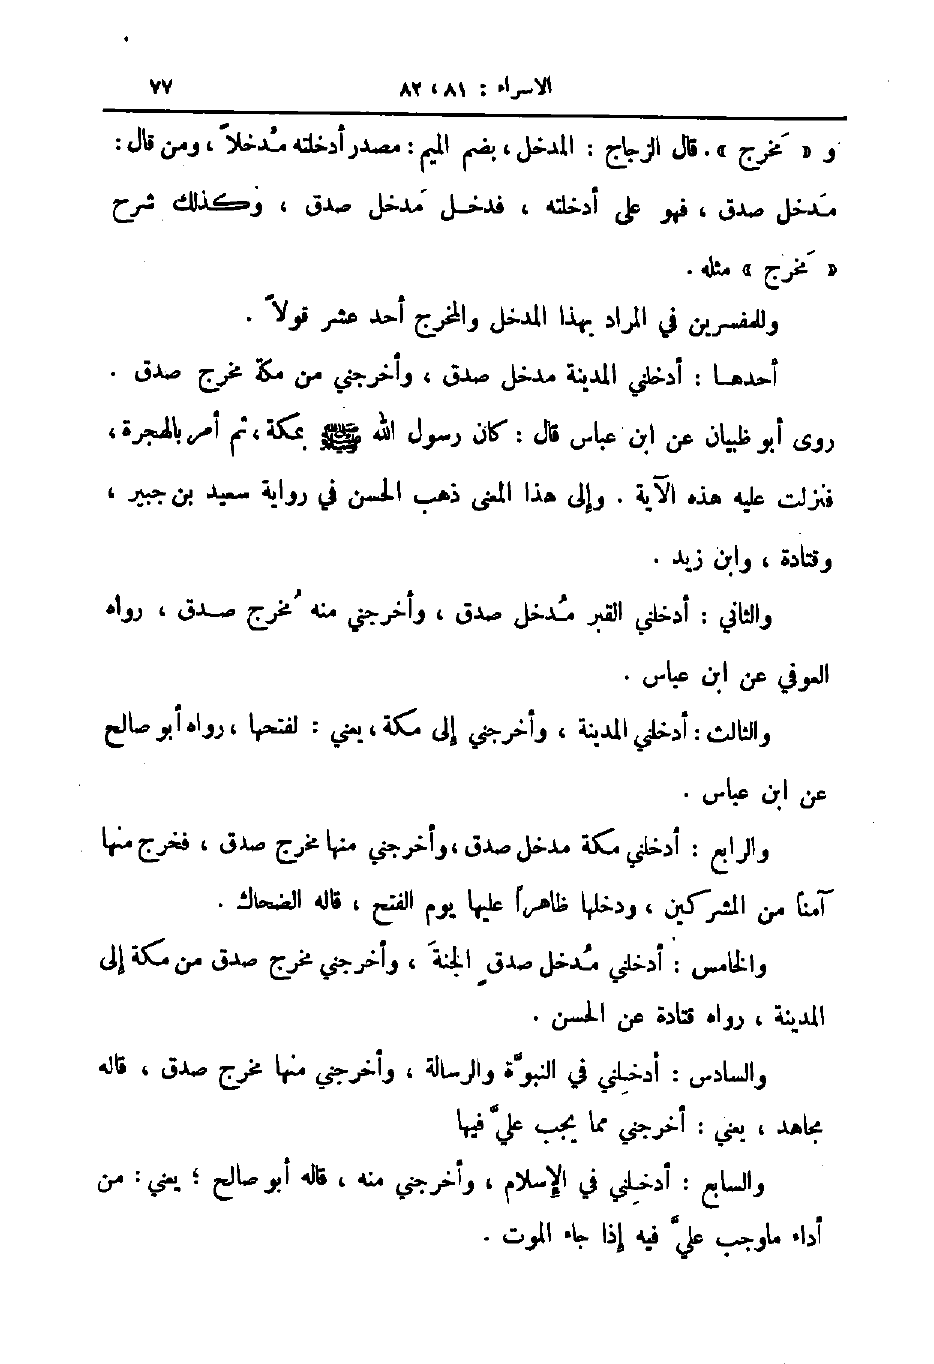 الاسراء : ٨١ ، ٨٢ ٧٧
و « مَخرج » . قال الزجاج : المدخل ، بضم الميم : مصدر أدخلته مُدخلاً ، ومن قال :
مَدخل صدق ، فهو على أدخلته ، فدخـل مَدخل صدق ، وكـذلك شرح
« مَخرج » مثله .
وللمفسرين في المراد بهذا المدخل والمخرج أحد عشر قولاً .
أحدهـا : أدخلني المدينة مدخل صدق ، وأخرجني من مكة مخرج صدق .
روى أبو ظبيان عن ابن عباس قال : كان رسول الله ﷺ بمكة ، ثم أمر بالهجرة ،
فنزلت عليه هذه الآية . وإلى هذا المعنى ذهب الحسن في رواية سعيد بن جبير ،
وقتادة ، وابن زيد .
والثاني : أدخلني القبر مُدخل صدق ، وأخرجني منه مُخرج صـدق ، رواه
العوفي عن ابن عباس .
والثالث : أدخلني المدينة ، وأخرجني إلى مكة ، يعني : لفتحها ، رواه أبو صالح
عن ابن عباس .
والرابع : أدخلني مكة مدخل صدق ، وأخرجني منها مخرج صدق ، فخرج منها
آمناً من المشركين ، ودخلها ظاهراً عليها يوم الفتح ، قاله الضحاك .
والخامس : أدخلني مُدخل صدقٍ الجنةَ ، وأخرجني مخرج صدق من مكة إلى
المدينة ، رواه قتادة عن الحسن .
والسادس : أدخِلني في النبوَّة والرسالة ، وأخرجني منها مخرج صدق ، قاله
مجاهد ، يعني : أخرجني مما يجب عليَّ فيها
والسابع : أدخِلني في الإسلام ، وأخرجني منه ، قاله أبو صالح ؛ يعني : من
أداء ماوجب عليَّ فيه إذا جاء الموت .